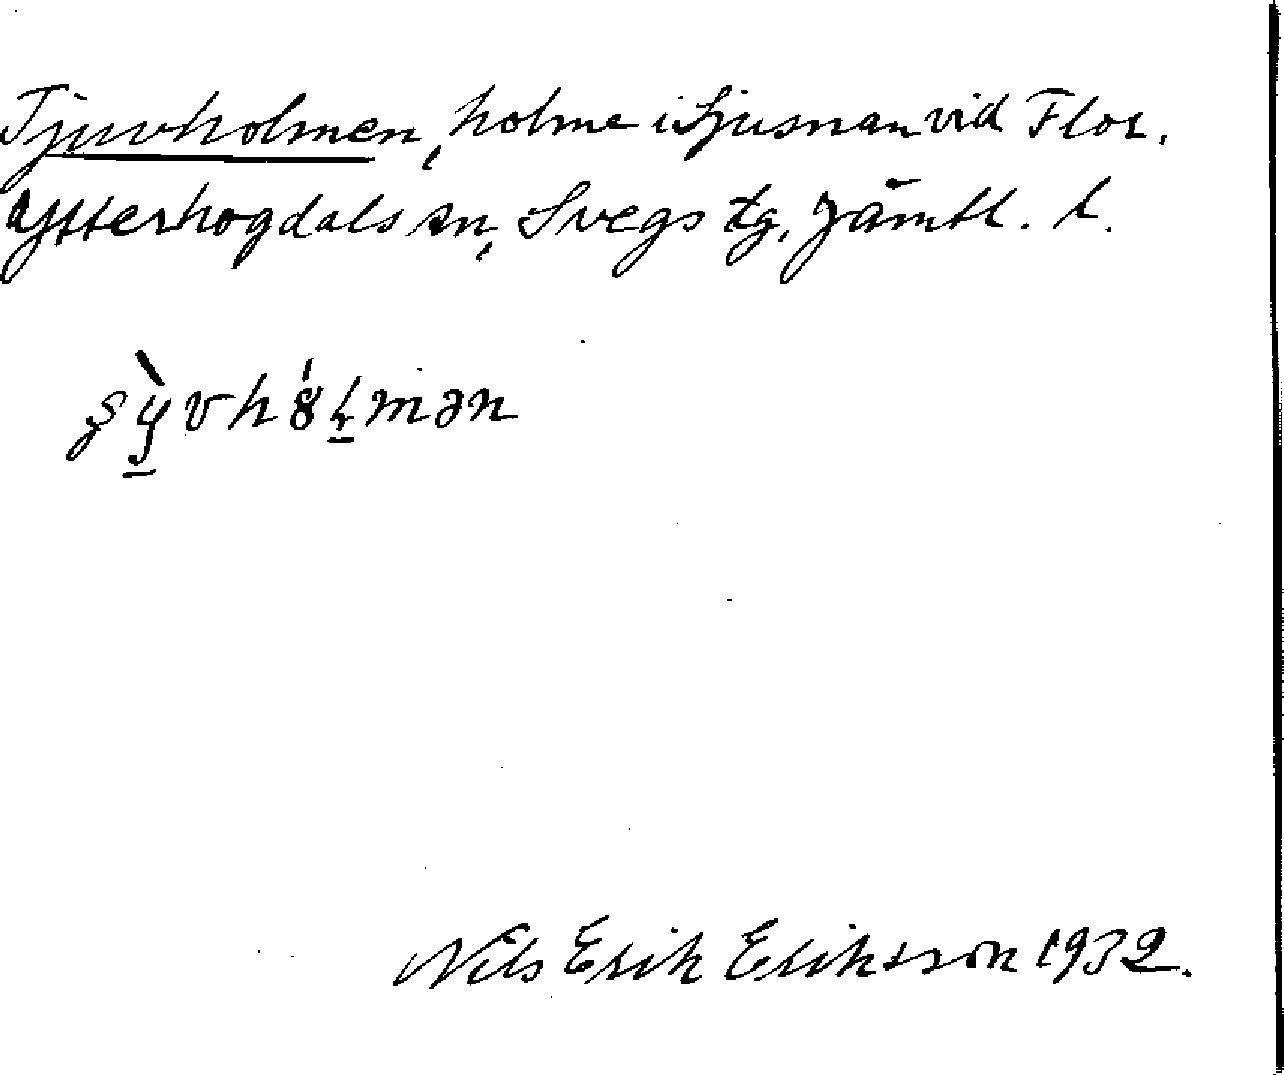 Tjuvholmen, holme i Ljusnan vid Flor.
Ytterhogdals sn, Svegs tg, Jämtl. l.
Nils Erik Eriksson 1932.